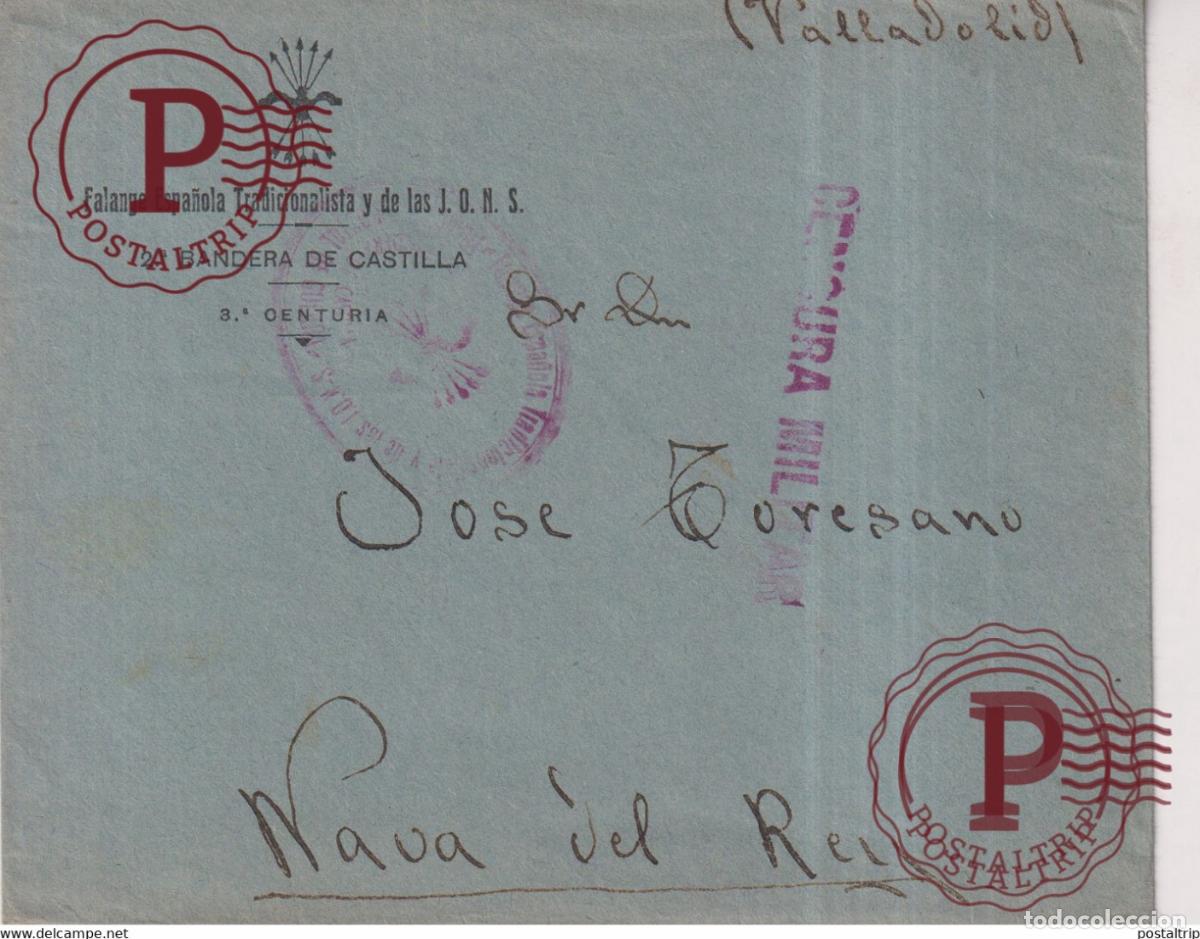 (Valladolid)
Falange Española Tradicionalista y de las J. O. N. S.
2ª BANDERA DE CASTILLA
3.ª CENTURIA
Sr Dn
CENSURA MILITAR
Española Tradicionalista y de las J.O.N.S.
Jose Toresano
Nava del Rei
P
POSTALTRIP
P
POSTALTRIP
POSTALTRIP
todocoleccion
www.delcampe.net
postaltrip